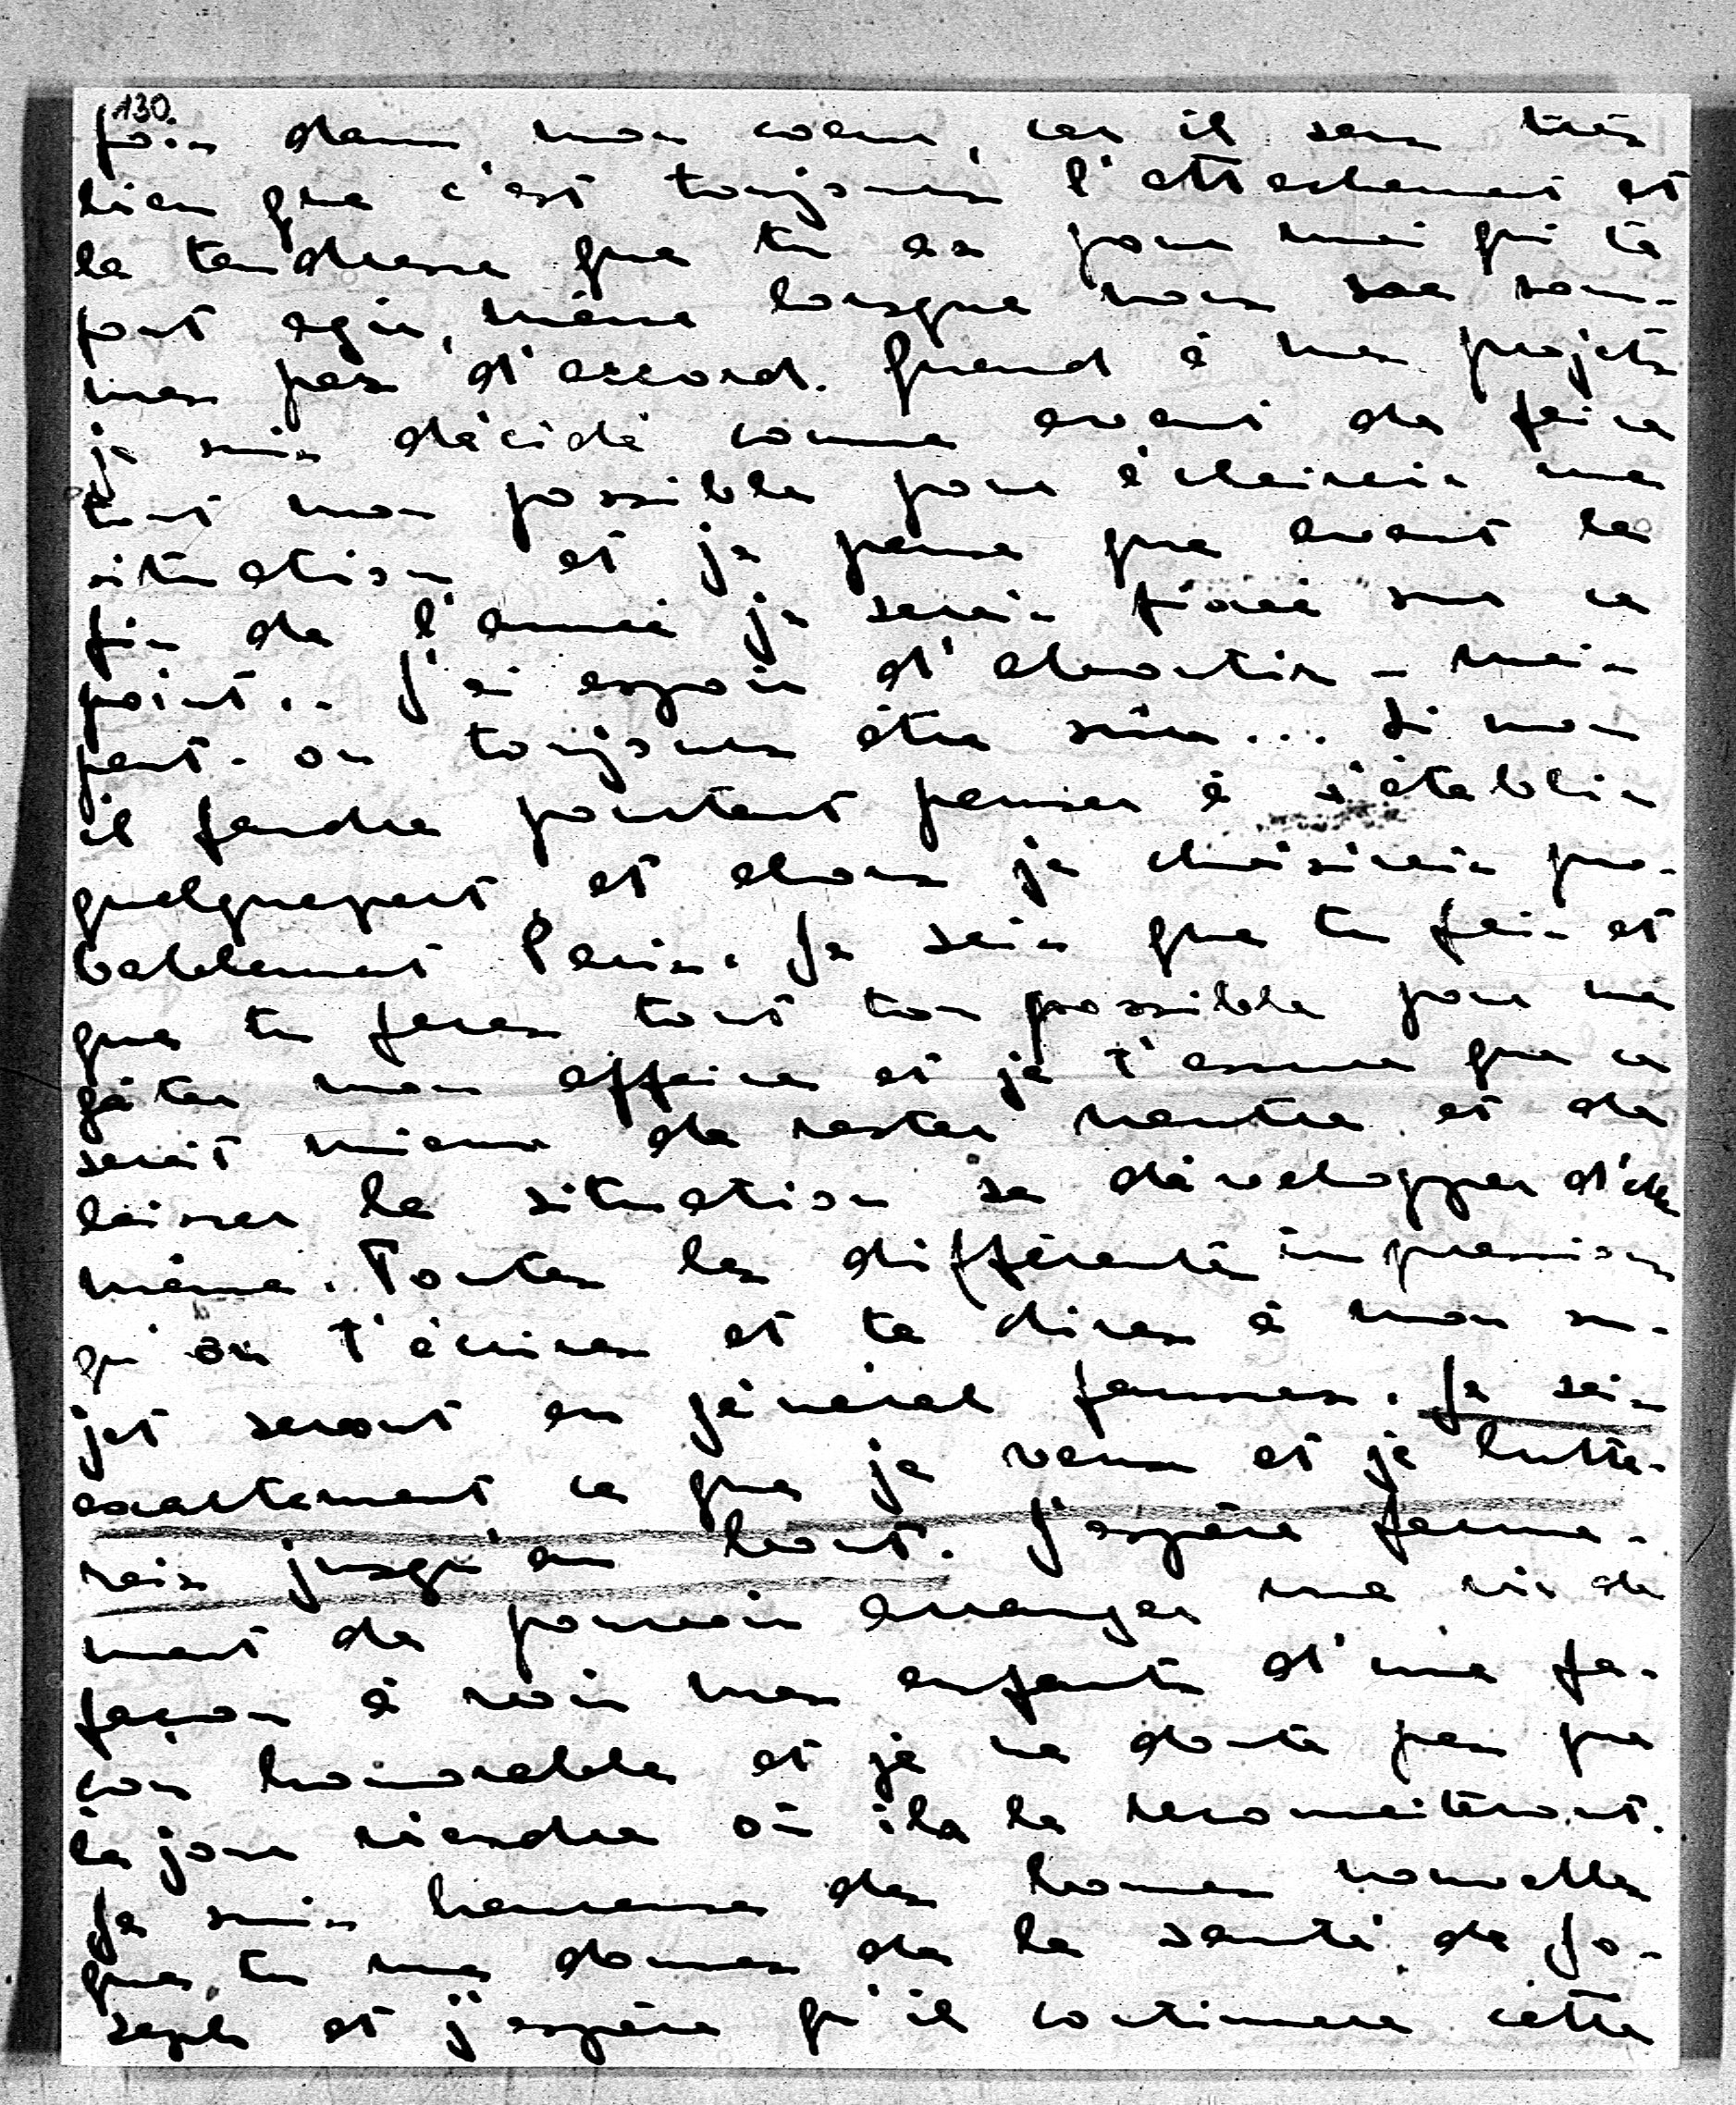 130.
fois dans mon coeur, car il sens très
bien que c'est toujours l'attachement et
la tendresse que tu as pour moi qui te
font agir, même lorsque nous som-
mes pas d'accord. Quand à mes projets
je suis décidé comme avant de faire
tout mon possible pour éclaircir ma
situation et je pense que avant la
fin de l'année je serais fixée sur ce
point.. J'ai espoir d'aboutir - mais
peut-on toujours être sûre... Si non
il faudra pourtant penser à s'établir
quelquepart, et alors je choisirais pro-
bablement Paris. Je sais que tu fais et
que tu feras tout ton possible pour me
gâter mon affaire et je t'assure que ce
serait mieux de rester neutre et de
laisser la situation se développer d'elle
même. Toutes les différentes impressions
qu'on t'écrira et te diras à mon su-
jet seront en général fausses. Je sais
exactement ce que je veux et je lutte-
rais jusqu'au bout. J'espère ferme-
ment de pouvoir arranger ma vie de
façon à voir mes enfants d'une fa-
çon honorable et je ne doute pas que
le jour viendra où ils le reconnaiteront.
Je suis heureuse des bonnes nouvelles
que tu me donnes de la santé de Jo-
seph et j'espère qu'il continuera cette